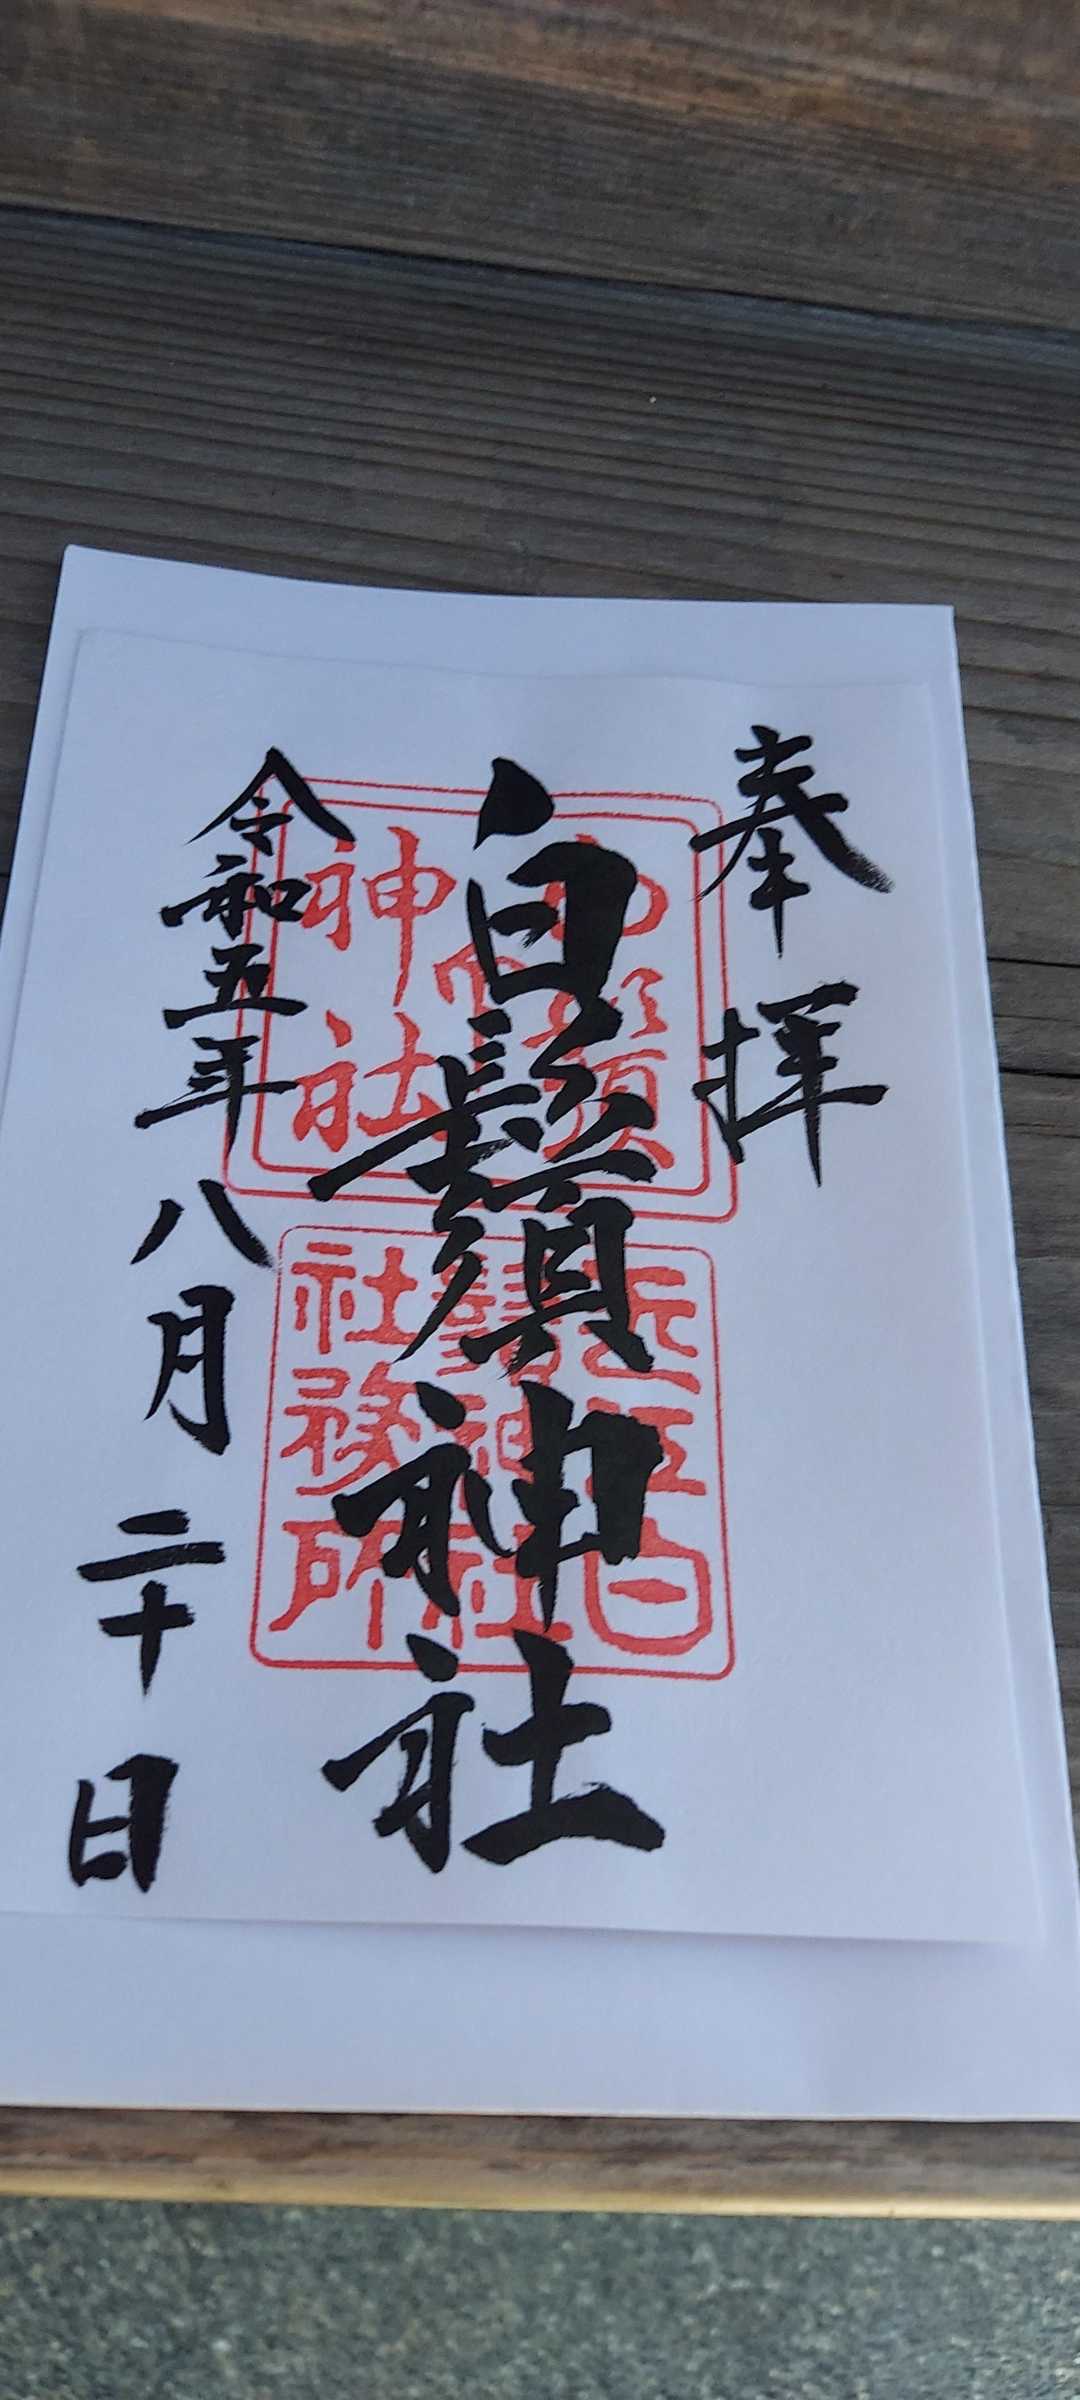 奉拝
白鬚神社
令和五年八月二十日
近江白
鬚神社
社務所
神社